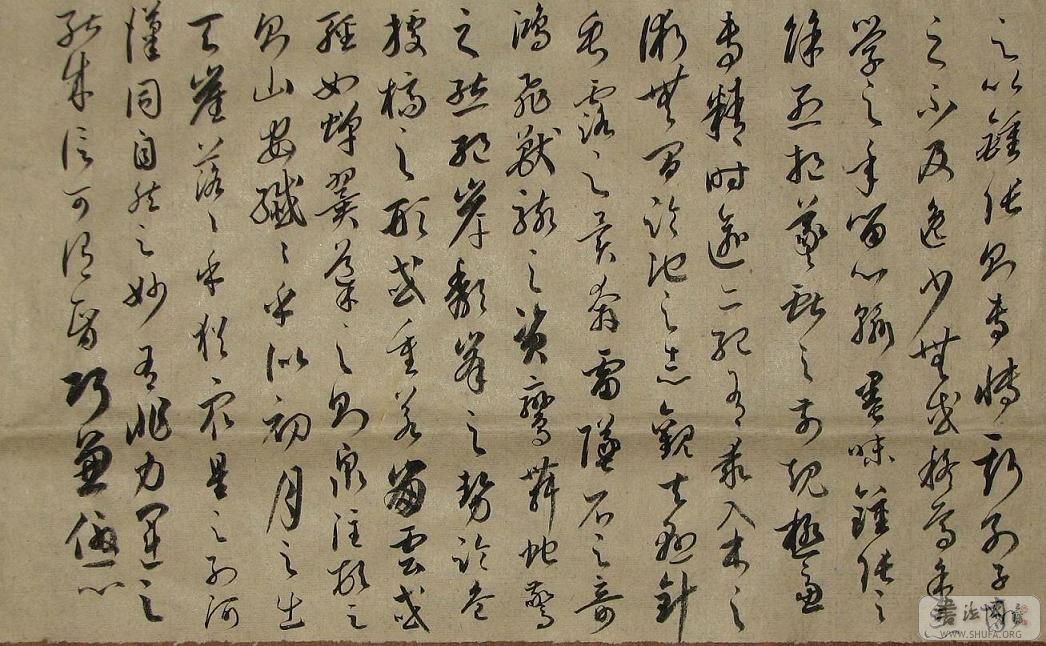 之以鍾張則專博斯別子
之不及逸少無或疑焉余
學之年留心翰墨味鍾張之
餘烈挹羲獻之前規極慮
專精時逾二紀有乖入木之
術無間臨池之志觀夫懸針
垂露之異奔雷墜石之奇
鴻飛獸駭之資鸞舞蛇驚
之態絕岸頹峯之勢臨危
據槁之形或重若崩雲或
輕如蟬翼導之則泉注頓之
則山安纖々乎似初月之出
天崖落々乎猶眾星之列河
漢同自然之妙有非力運之
能成信可謂智巧兼優心
WWW.SHUFA.ORG